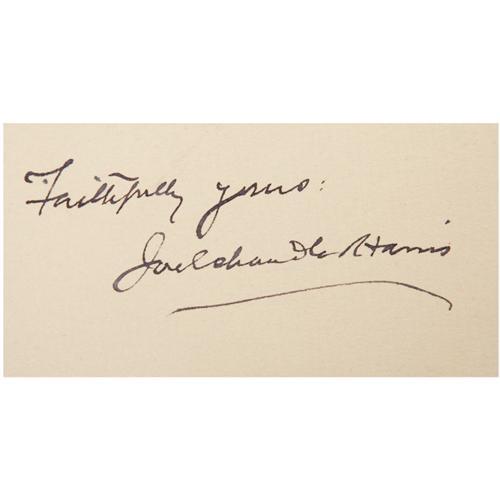 Faithfully yours:
Joel Chandler Harris